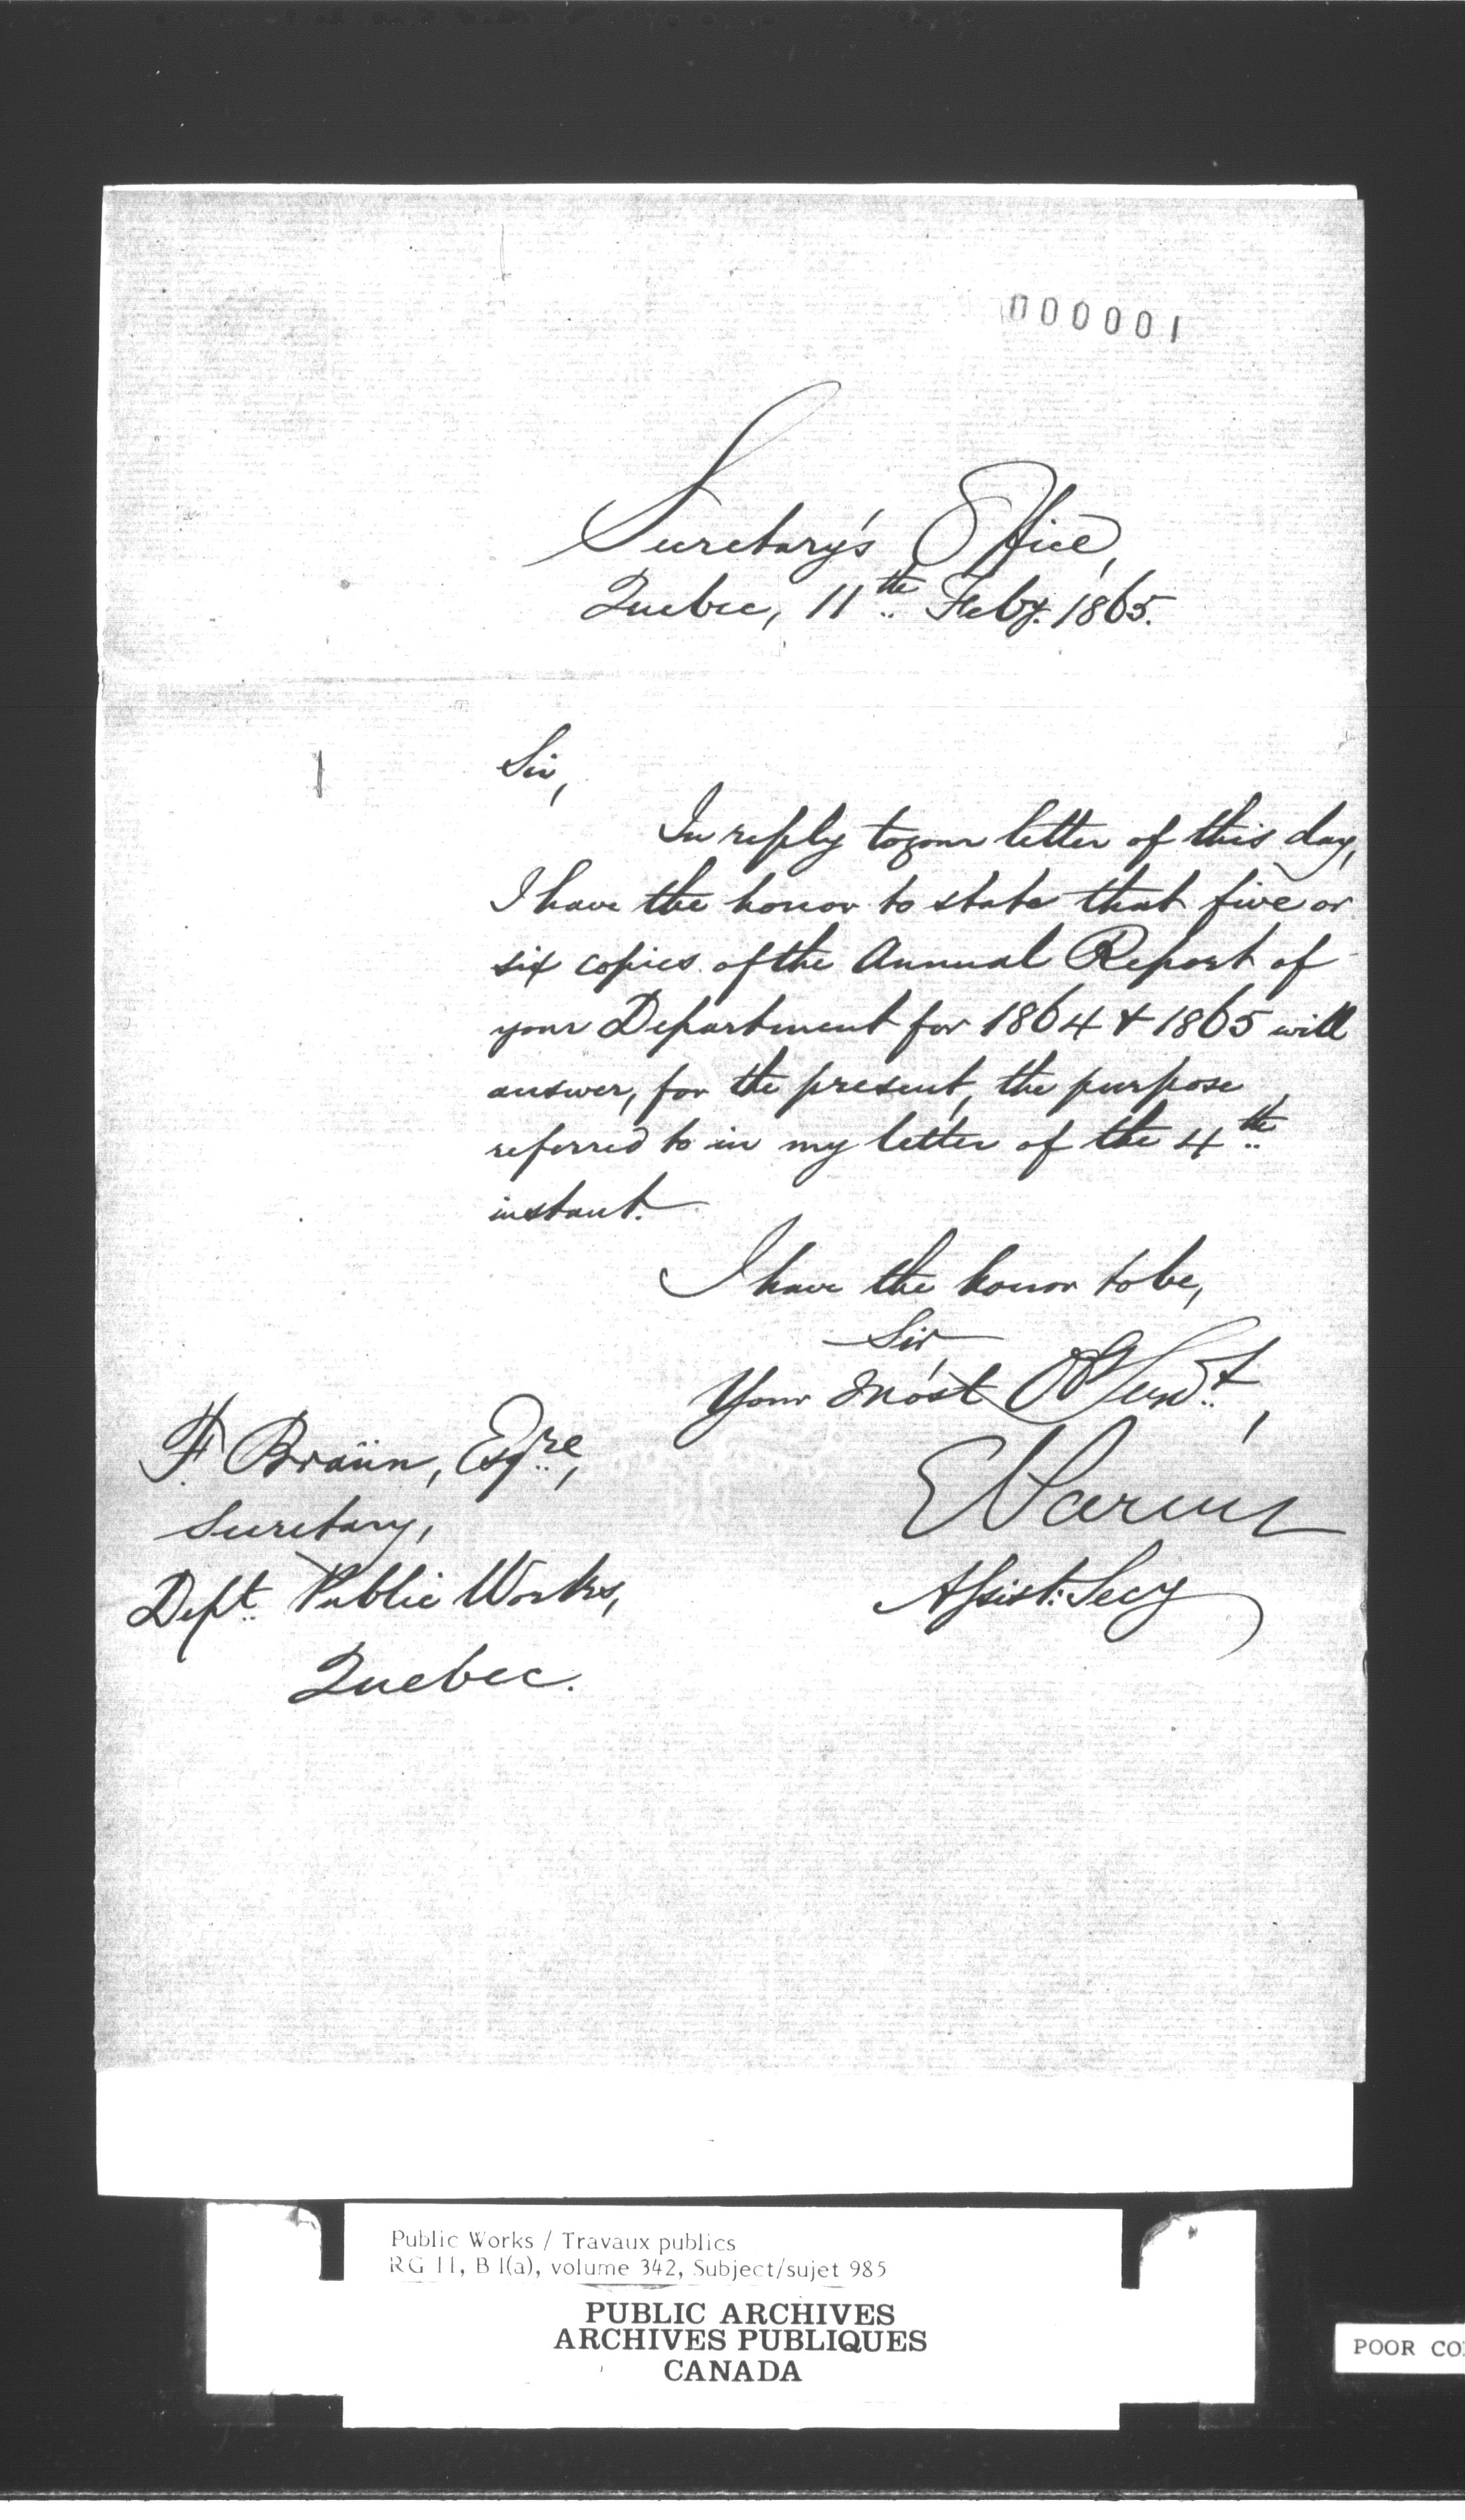 000001
Secretary's Office,
Quebec, 11th Feby. 1865.
Sir,
In reply to your letter of this day,
I have the honor to state that five or
six copies of the Annual Report of
your Department for 1864 & 1865 will
answer, for the present, the purpose
referred to in my letter of the 4th
instant.
I have the honor to be,
Sir,
Your most Obt Servt,
E Parent
Assist: Secy
F. Braün, Esqre,
Secretary,
Dept. Public Works,
Quebec.
Public Works / Travaux publics
RG 11, B 1(a), volume 342, Subject/sujet 985
PUBLIC ARCHIVES
ARCHIVES PUBLIQUES
CANADA
POOR CO